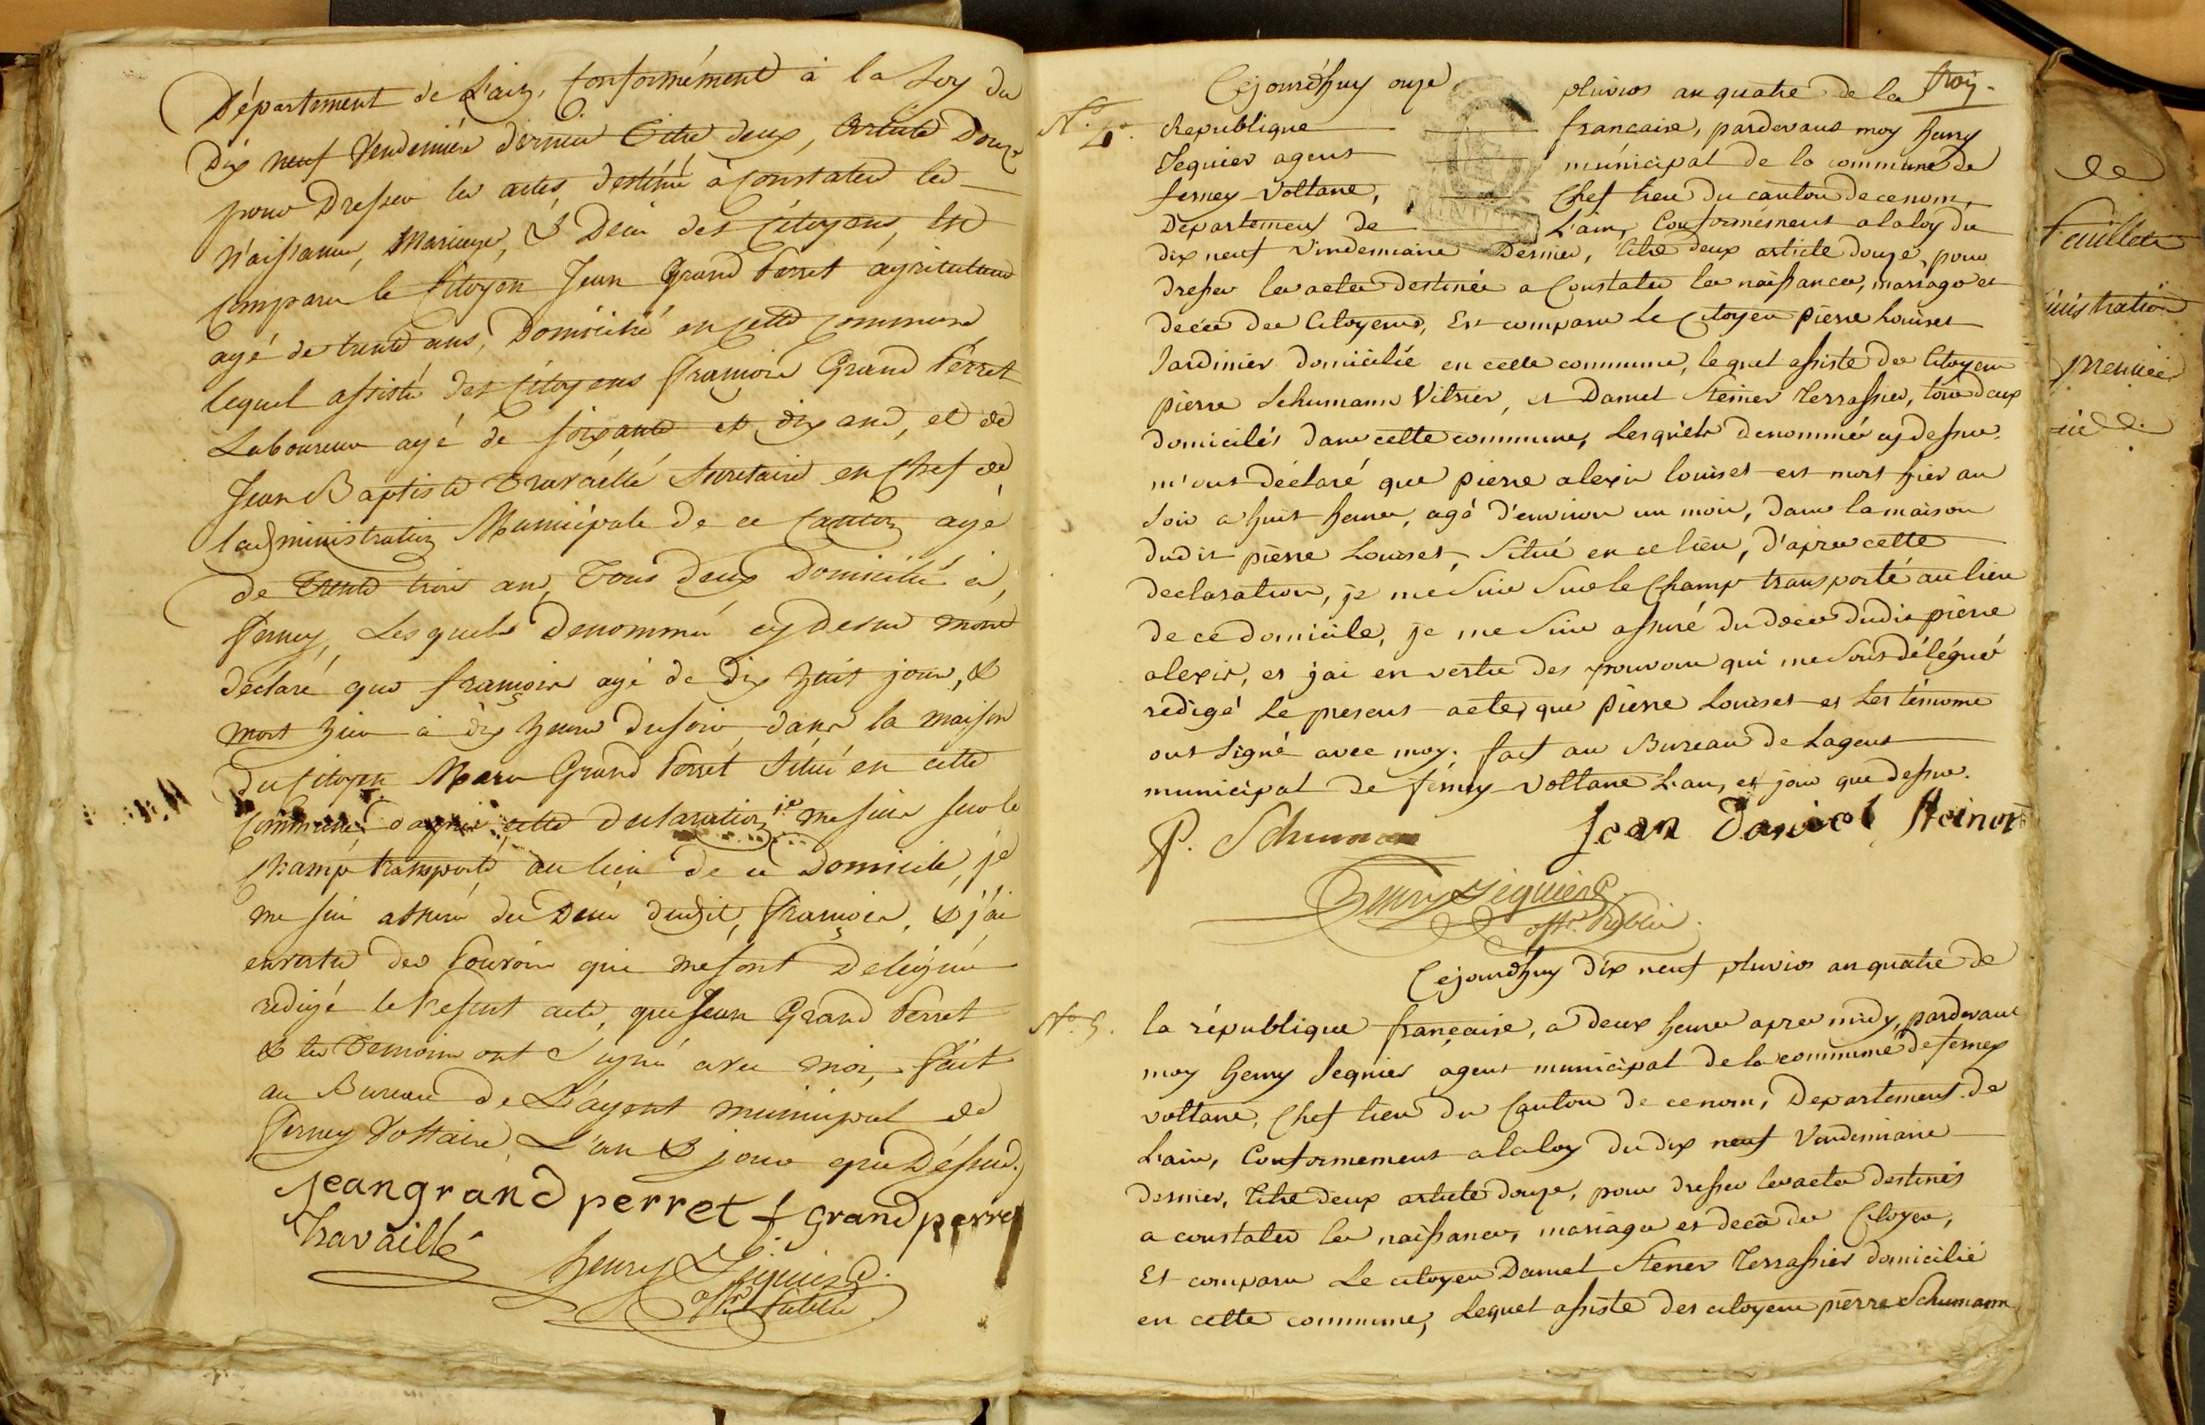 Département de L'ain, Conformément à la Loy du
Dix neuf Vendemiere dernier Titre deux, Article Douze
pour Dresser les actes, destiné à Constater les
Naissance, Mariage, & Deces des Citoyens, Est
comparu le Citoyen Jean Grand Perret agriculteur
agé de trente ans, Domicilié en cette commune
lequel assisté des Citoyens François Grand Perret
Laboureur agé de soixante et dix ans, et de
Jean Baptiste Travaillé Secretaire en Chef de
l'administration Municipale de ce Canton agé
de trente trois ans, Tous deux Domicilié à
Ferney, Lesquels Denommé cy Desus mont
déclaré que françois agé de Dix huit jours, &
mort hier à dix heures du soir, dans la maison
Du Citoyen Grand Perret Situé en cette
Commune, d'après cette declaration, je me suis sur le
champ transporté au lieu de ce Domicile, je
me suis assuré du Deces dudit, François, & j'ai
envertu des Pouvoirs qui me sont Delegué
redigé le Present acte, que Jean Grand Perret
& les Temoins ont Signé avec moi, fait
au Bureau de L'agent municipal de
Ferney Voltaire, L'an & jour que Déssus.
Jean grand perret f grand perret
Travaillé
henry Seguier
offr Public
trois.
Cejourdhuy onze pluvios an quatre de la
No. 4. Republique française, pardevant moy henry
Seguier agent municipal de la commune de
ferney Voltaire, Chef lieu du canton de ce nom,
Departement de L'ain, Conformement a la loy du
dix neuf Vindemiaire Dernier, titre deux article douze, pour
dresser les actes destinés a Constater les naissances, mariages et
deces des Citoyens, Est comparu Le Citoyen pierre Louiset
Jardinier domicilié en cette commune, lequel assisté des Citoyens
pierre Schumann Vitrier, et Daniel Steiner Terrassier, tous deux
domicilés dans cette commune, Lesquels denommés cy dessus.
m'ont déclaré que pierre alexis louiset est mort hier au
soir a huit heures, agé d'environ un mois, dans la maison
dudit pierre Louiset, Situé en ce lieu, d'apres cette
declaration, je me suis sur le Champ transporté au lieu
de ce domicile, je me suis assuré du deces dudit pierre
alexis, et jai en vertu des pouvoirs qui me sont délégués
redigé le present acte, que pierre Louiset et Les témoins
ont signé avec moy. fait au Bureau de Lagent
municipal de férney Voltaire L'an, et jour que dessus.
P. Schuman Jean Daniel Steiner
henry Seguier
offr. Public.
Cejourdhuy dix neuf pluvios an quatre de
No. 5. la république française, a deux heures apres midy, pardevant
moy henry Seguier agent municipal de la commune de ferney
voltaire, Chef lieu du Canton de ce nom, Departement de
L'ain, Conformement a la loy du dix neuf Vendemiaire
dernier, titre deux article douze, pour dresser les actes destinés
a constater les naissances, mariages et deces des Citoyens,
Est comparu Le citoyen Daniel Stener Terrassier domicilié
en cette commune, Lequel assisté des citoyens pierre Schumann
de
feuillets
inistration
premier